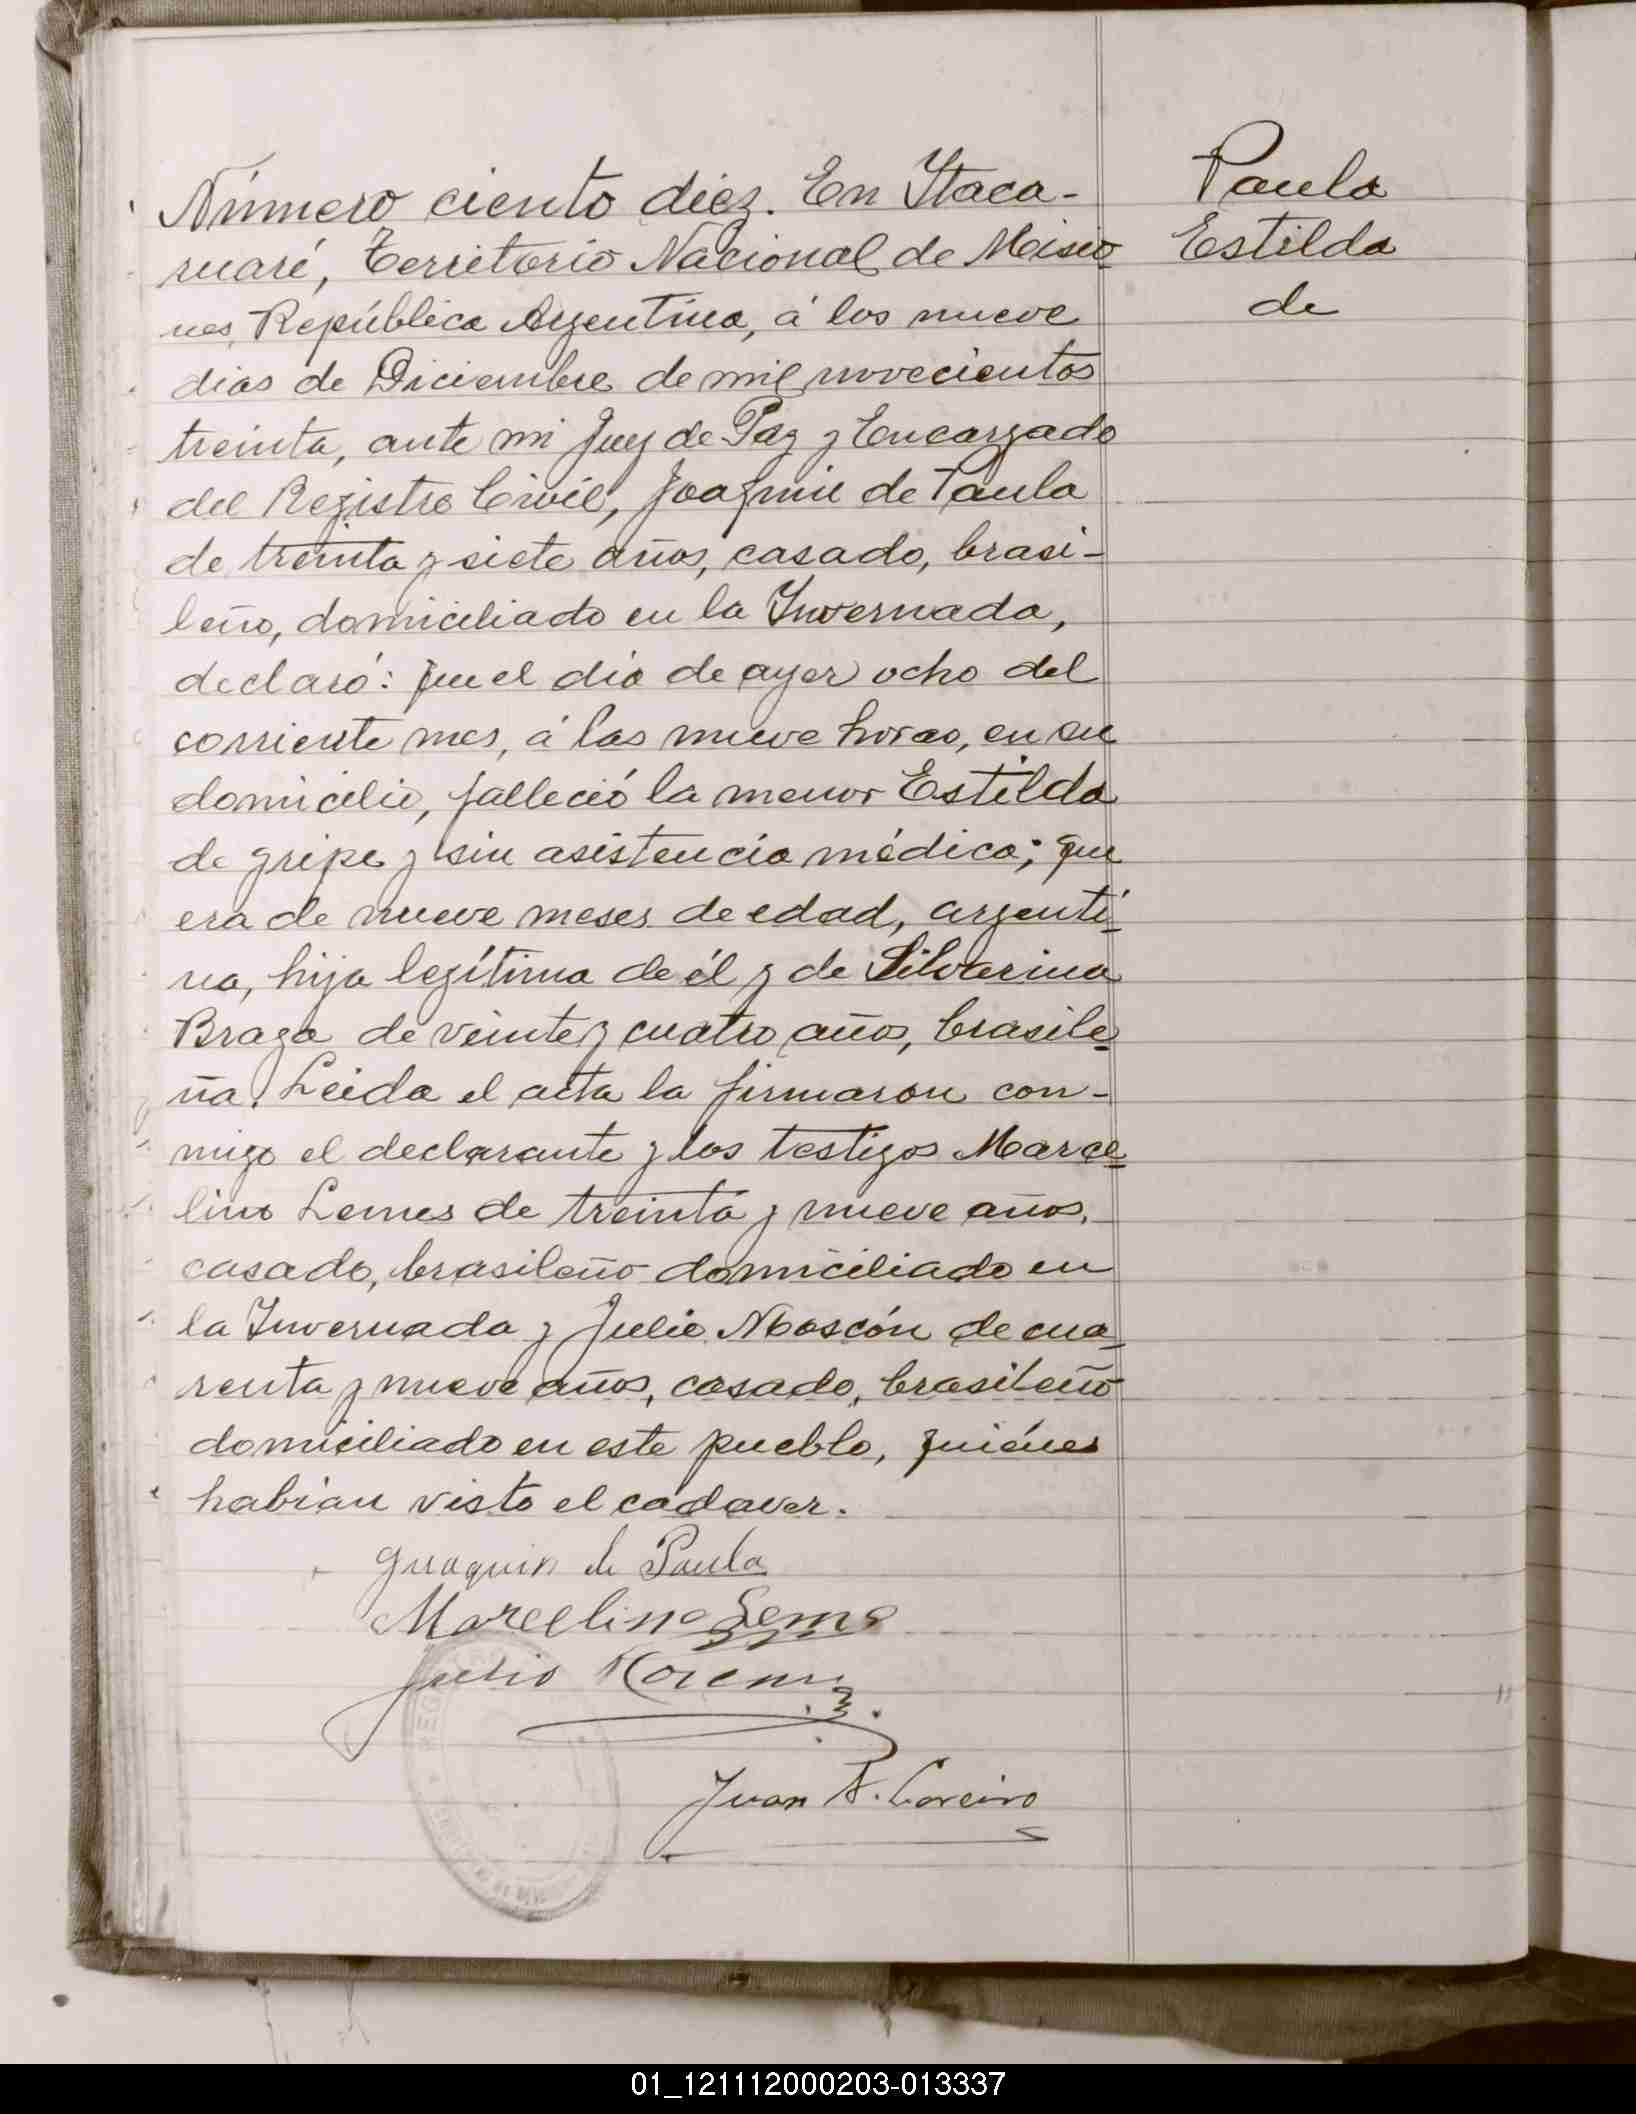 Número ciento diez. En Itaca-
ruaré, Territorio Nacional de Misio-
nes, República Argentina, á los nueve
dias de Diciembre de mil novecientos
treinta, ante mi Juez de Paz y Encargado
del Registro Civil, Joaquin de Paula
de treinta y siete años, casado, brasi-
leño, domiciliado en la Invernada,
declaró: que el dia de ayer ocho del
corriente mes, á las nueve horas, en su
domicilio, falleció la menor Estilda
de gripe y sin asistencia médica; que
era de nueve meses de edad, argenti-
na, hija legítima de él y de Silvarina
Braga de veinte y cuatro años, brasile-
ña. Leida el acta la firmaron con-
migo el declarante y los testigos Marce-
lino Lemes de treinta y nueve años,
casado, brasileño domiciliado en
la Invernada y Julio Moscón de cua-
renta y nueve años, casado, brasileño
domiciliado en este pueblo, quiénes
habian visto el cadaver.
Juaquin de Paula
Marcelino Leme
Julio
Juan A.
Paula
Estilda
de
01_121112000203-013337